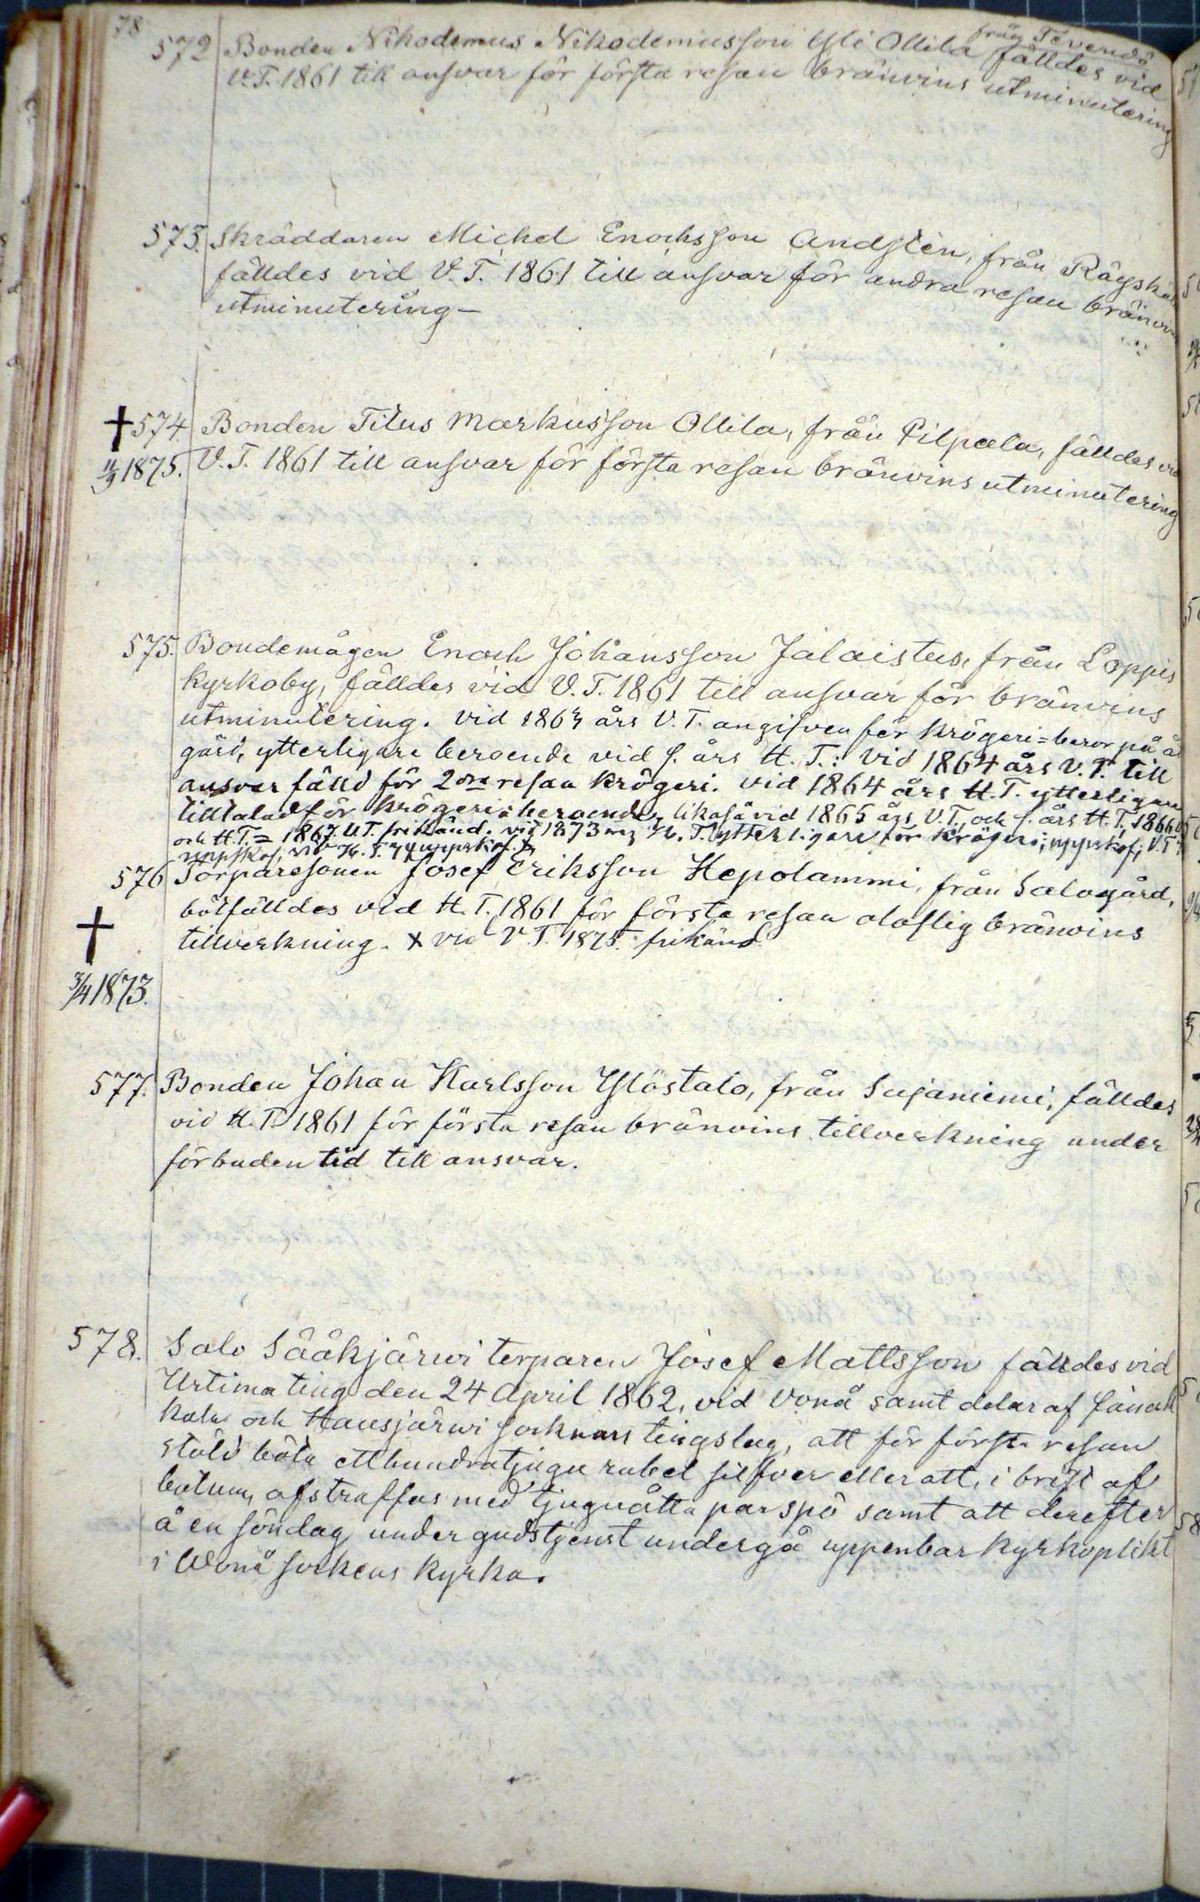 78
från Tevendö
572 Bonden Nikodemus Nikodemusson Yli Ollila fälldes vid
V.T. 1861 till ansvar för första resan bränvins utminutering
573. Skräddaren Michel Enochsson Andstén, från
fälldes vid V.T. 1861 till ansvar för andra resan
utminutering –
†574. Bonden Titus Markusson Ollila, från Pilpala, fälldes
1875. V.T. 1861 till ansvar för första resan bränvins utminutering
575. Bondemågen Enoch Johansson Jalaistus, från Loppis
kyrkoby, fälldes vid V.T. 1861 till ansvar för bränvins
utminutering. vid års V.T. angifven för krögeri = beror på
gärd, ytterligare beroende vid s. års H.T.: vid 1864 års V.T. till
ansvar fälld för 2dra resan krögeri. vid 1864 års H.T. ytterligare
tilltalad för krögeri: beroende, likaså vid 1865 års V.T. och s. års H.T., 1866
och H.T. = 1867 V.T. frikänd. vid 1873 H.T. ytterligare för krögeri; uppskof; V.T.
uppskof, vid H.T.
576 Torparesonen Josef Eriksson Hepolammi, från Salogård,
bötfälldes vid H.T. 1861 för första resan olaflig bränvins
tillverkning. x vid V.T. 1875. frikänd
†
3/4 1873.
577. Bonden Johan Karlsson Ylöstalo, från Sajaniemi, fälldes
vid H.T. 1861 för första resan bränvins tillverkning under
förbuden tid till ansvar.
578. Salo Sääkjärwi torparen Josef Mattsson fälldes vid
Urtima ting den 24 April 1862, vid Vonå samt delar af Janak
kala och Hausjärwi socknars tingslag, att för första resan
stöld böta etthundratjugu rubel silfver eller att, i brist af
botum, afstraffas med tjuguåtta par spö samt att derefter
å en söndag under gudstjenst undergå uppenbar kyrkoplikt
i Wonå sockens kyrka.